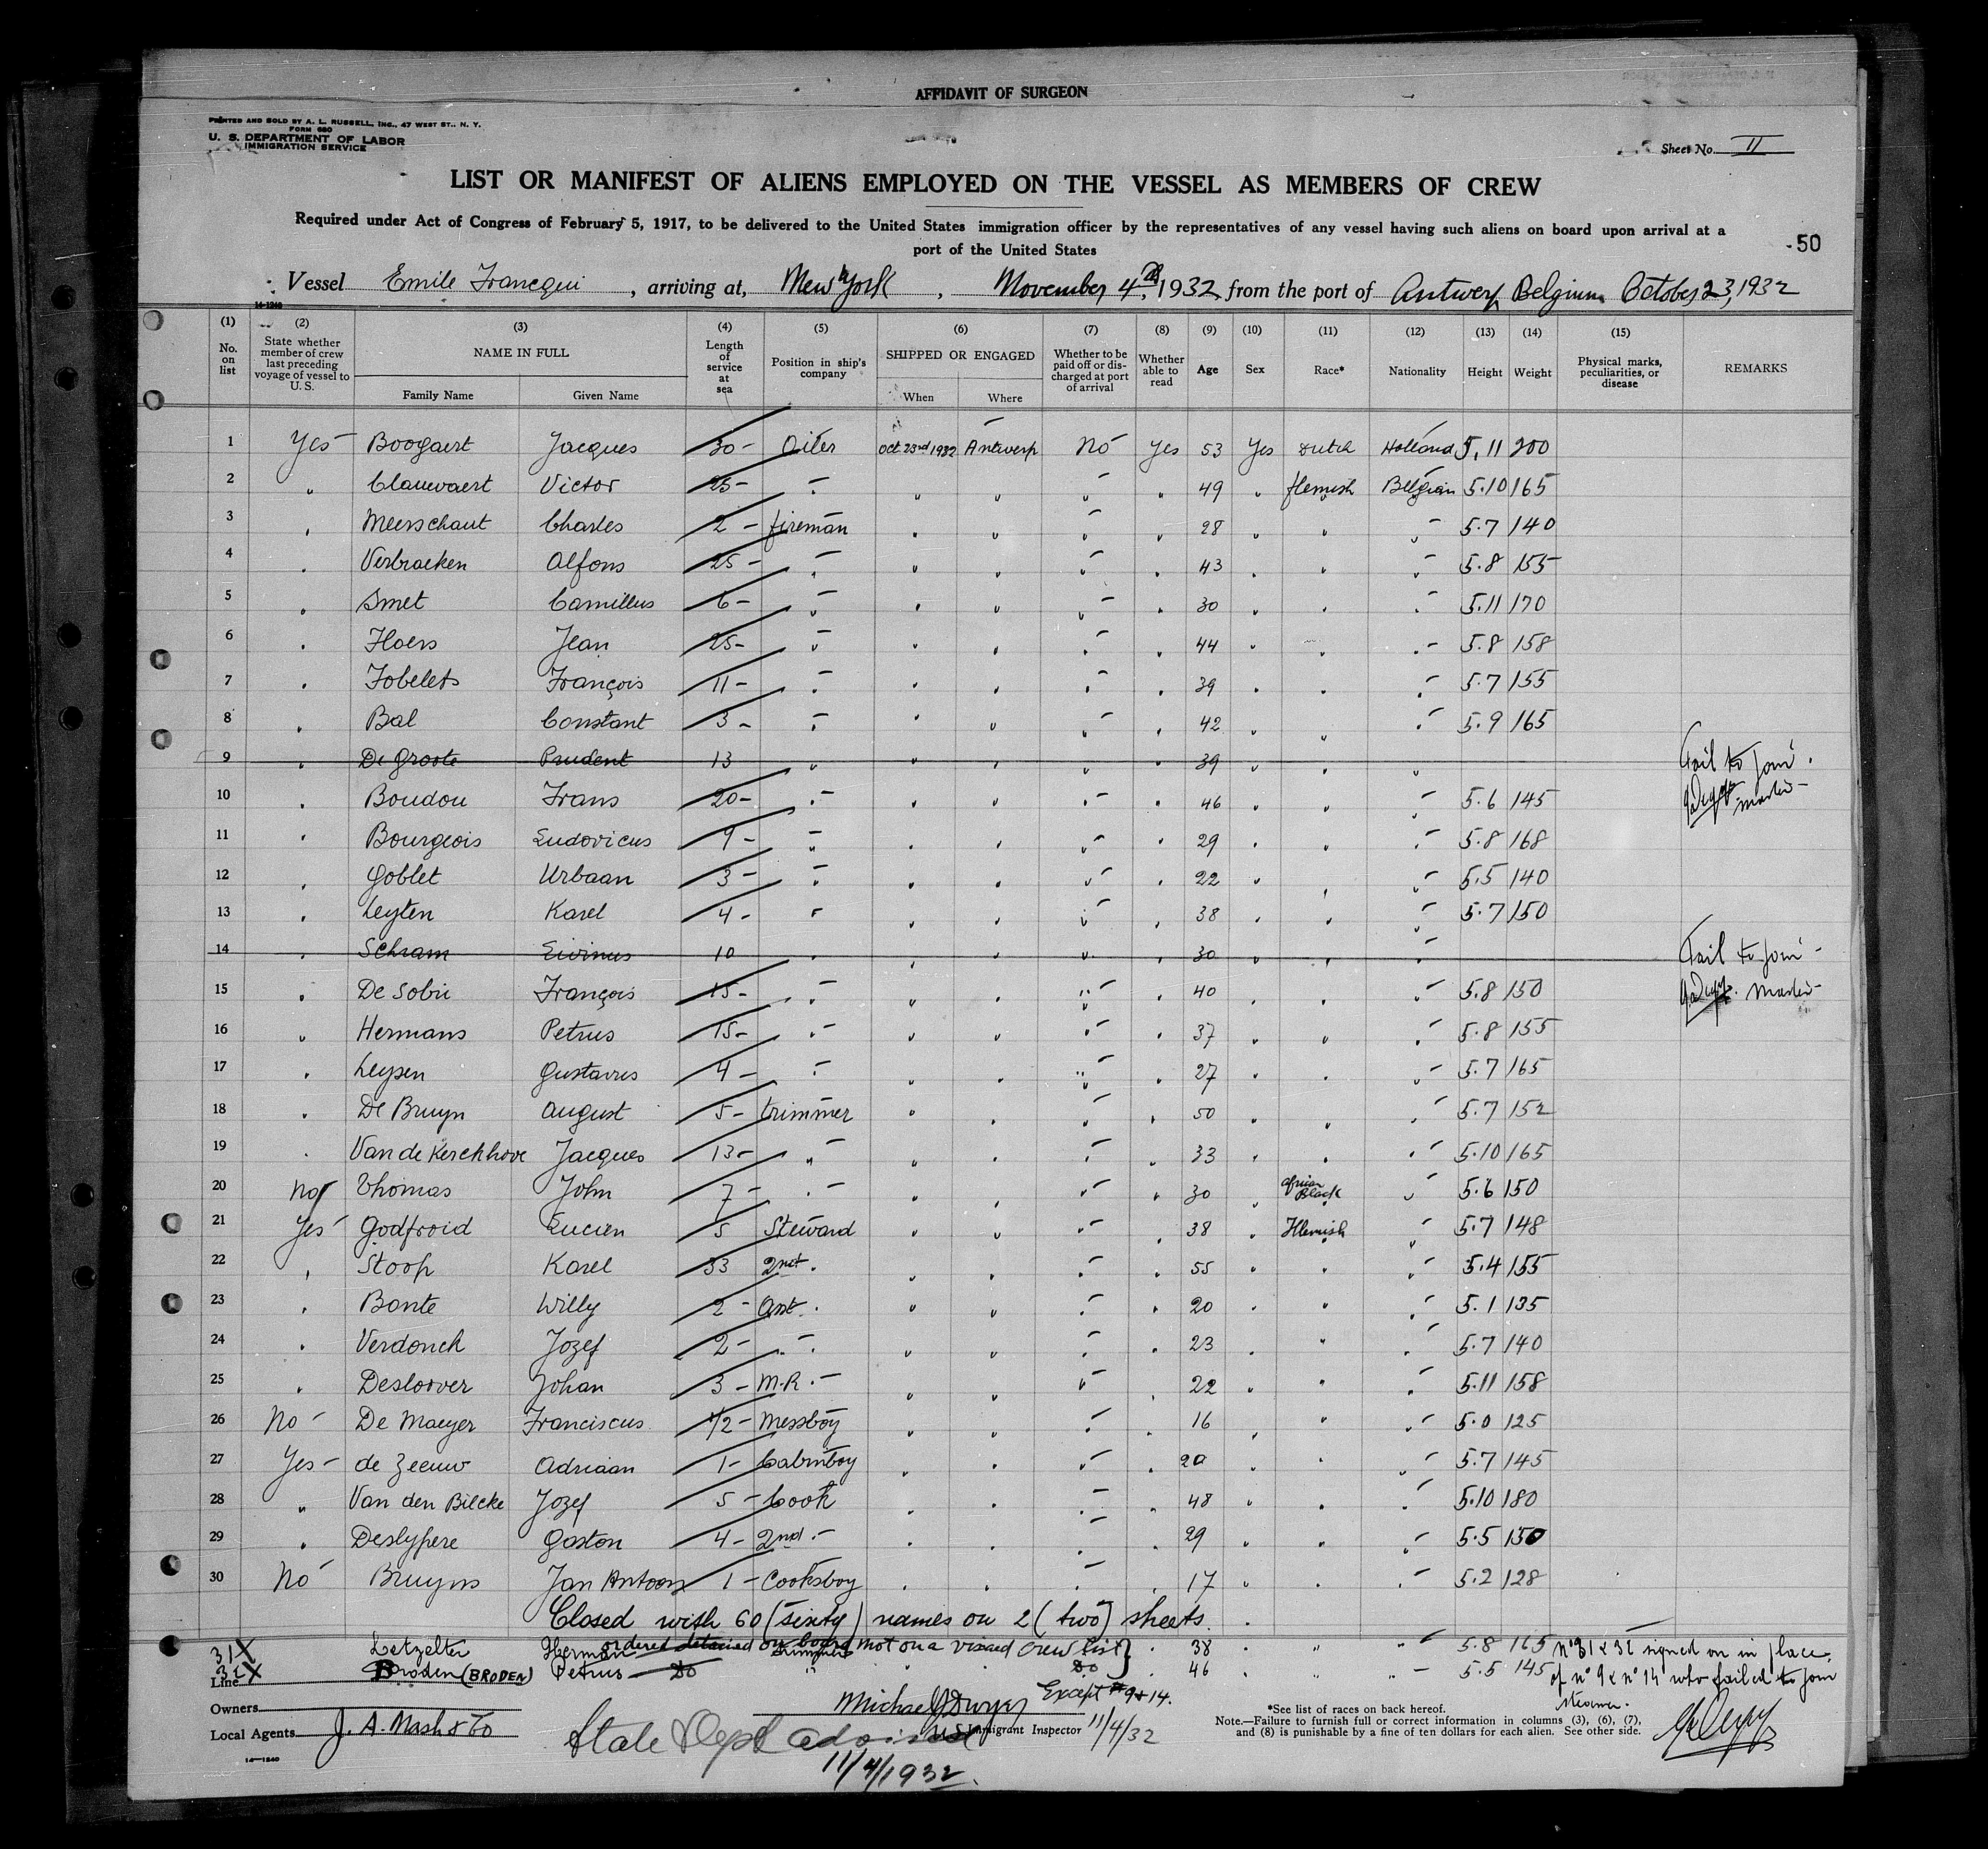 AFFIDAVIT OF SURGEON
PRINTED AND SOLD BY A. L. RUSSELL, INC., 47 WEST ST., N. Y.
FORM 680
U. S. DEPARTMENT OF LABOR
IMMIGRATION SERVICE
Sheet No. II
LIST OR MANIFEST OF ALIENS EMPLOYED ON THE VESSEL AS MEMBERS OF CREW
Required under Act of Congress of February 5, 1917, to be delivered to the United States immigration officer by the representatives of any vessel having such aliens on board upon arrival at a
port of the United States
50
Vessel Emile Francqui, arriving at, New York, November 4th, 1932 from the port of Antwerp Belgium October 23, 1932
14-1240
(1) (2) (3) (4) (5) (6) (7) (8) (9) (10) (11) (12) (13) (14) (15)
No. on list | State whether member of crew last preceding voyage of vessel to U. S. | NAME IN FULL | Length of service at sea | Position in ship's company | SHIPPED OR ENGAGED | Whether to be paid off or discharged at port of arrival | Whether able to read | Age | Sex | Race* | Nationality | Height | Weight | Physical marks, peculiarities, or disease | REMARKS
Family Name | Given Name | When | Where
1 Yes Boogaert Jacques 30 - Oiler Oct 23rd 1932 Antwerp No Yes 53 Yes Dutch Holland 5,11 200
2 " Clauwaert Victor 25 - " " " " " 49 " flemish Belgian 5.10 165
3 " Meerschaut Charles 2 - fireman " " " " 28 " " " 5.7 140
4 " Verbraeken Alfons 25 - " " " " " 43 " " " 5.8 155
5 " Smet Camillus 6 - " " " " " 30 " " " 5.11 170
6 " Floers Jean 25 - " " " " " 44 " " " 5.8 158
7 " Fobelets François 11 - " " " " " 39 " " " 5.7 155
8 " Bal Constant 3 - " " " " " 42 " " " 5.9 165
9 " De Groote Prudent 13 " " " " " 39 " " " Fail to join.
10 " Boudou Frans 20 - " " " " " 46 " " " 5.6 145 master -
11 " Bourgeois Ludovicus 9 - " " " " " 29 " " " 5.8 168
12 " Goblet Urbaan 3 - " " " " " 22 " " " 5.5 140
13 " Leyten Karel 4 - " " " " " 38 " " " 5.7 150
14 " Schram Livinus 10 " " " " " 30 " " " Fail to join -
15 " De Sobrie François 15 - " " " " " 40 " " " 5.8 150 master -
16 " Hermans Petrus 15 - " " " " " 37 " " " 5.8 155
17 " Leysen Gustavus 4 - " " " " " 27 " " " 5.7 165
18 " De Bruyn August 5 - trimmer " " " " 50 " " " 5.7 152
19 " Van de Kerckhove Jacques 13 - " " " " " 33 " " " 5.10 165
20 No Thomas John 7 - " " " " " 30 " african Black " 5.6 150
21 Yes Godfroid Lucien 5 Steward " " " " 38 " Flemish " 5.7 148
22 " Stoop Karel 33 2nd " " " " " 55 " " " 5.4 155
23 " Bonte Willy 2 - Ast. " " " " " 20 " " " 5.1 135
24 " Verdonck Jozef 2 - " " " " " " 23 " " " 5.7 140
25 " Desloover Johan 3 - M.R. " " " " " 22 " " " 5.11 158
26 No De Maeyer Franciscus 1/2 - Messboy " " " 16 " " " 5.0 125
27 Yes - de Zeeuw Adriaan 1 - Cabinboy " " " " 20 " " " 5.7 145
28 " Van den Bilcke Jozef 5 - Cook " " " " 48 " " " 5.10 180
29 " Deslypere Gaston 4 - 2nd " " " " " 29 " " " 5.5 150
30 No Bruyns Jan Antoon 1 - Cooksboy " " " " 17 " " " 5.2 128
Closed with 60 (sixty) names on 2 (two) sheets.
ordered detained on board not on a visaed crew list
31 X Letzelter Herman trimmer 38 " " " 5.8 165 No 31 & 32 signed on in place
32 X Broden (BRODEN) Petrus Do " Do 46 " " " 5.5 145 of no 9 & no 14 who failed to join
steamer.
Line
Owners
Michael J Dwyer Except # 9 & 14.
Local Agents J. A. Nash & Co
U.S. Immigrant Inspector 11/4/32
State Dept advised
11/4/1932.
*See list of races on back hereof.
Note.—Failure to furnish full or correct information in columns (3), (6), (7),
and (8) is punishable by a fine of ten dollars for each alien. See other side.
14—1240